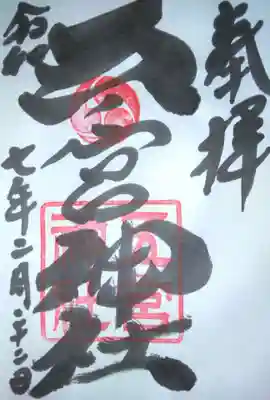 奉拝
五宮神社
令和七年二月二十二日